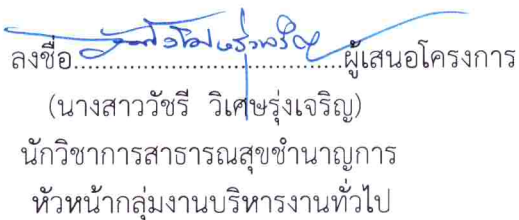 ลงชื่อ........................................ผู้เสนอโครงการ
(นางสาววัชรี วิเศษรุ่งเจริญ)
นักวิชาการสาธารณสุขชำนาญการ
หัวหน้ากลุ่มงานบริหารงานทั่วไป